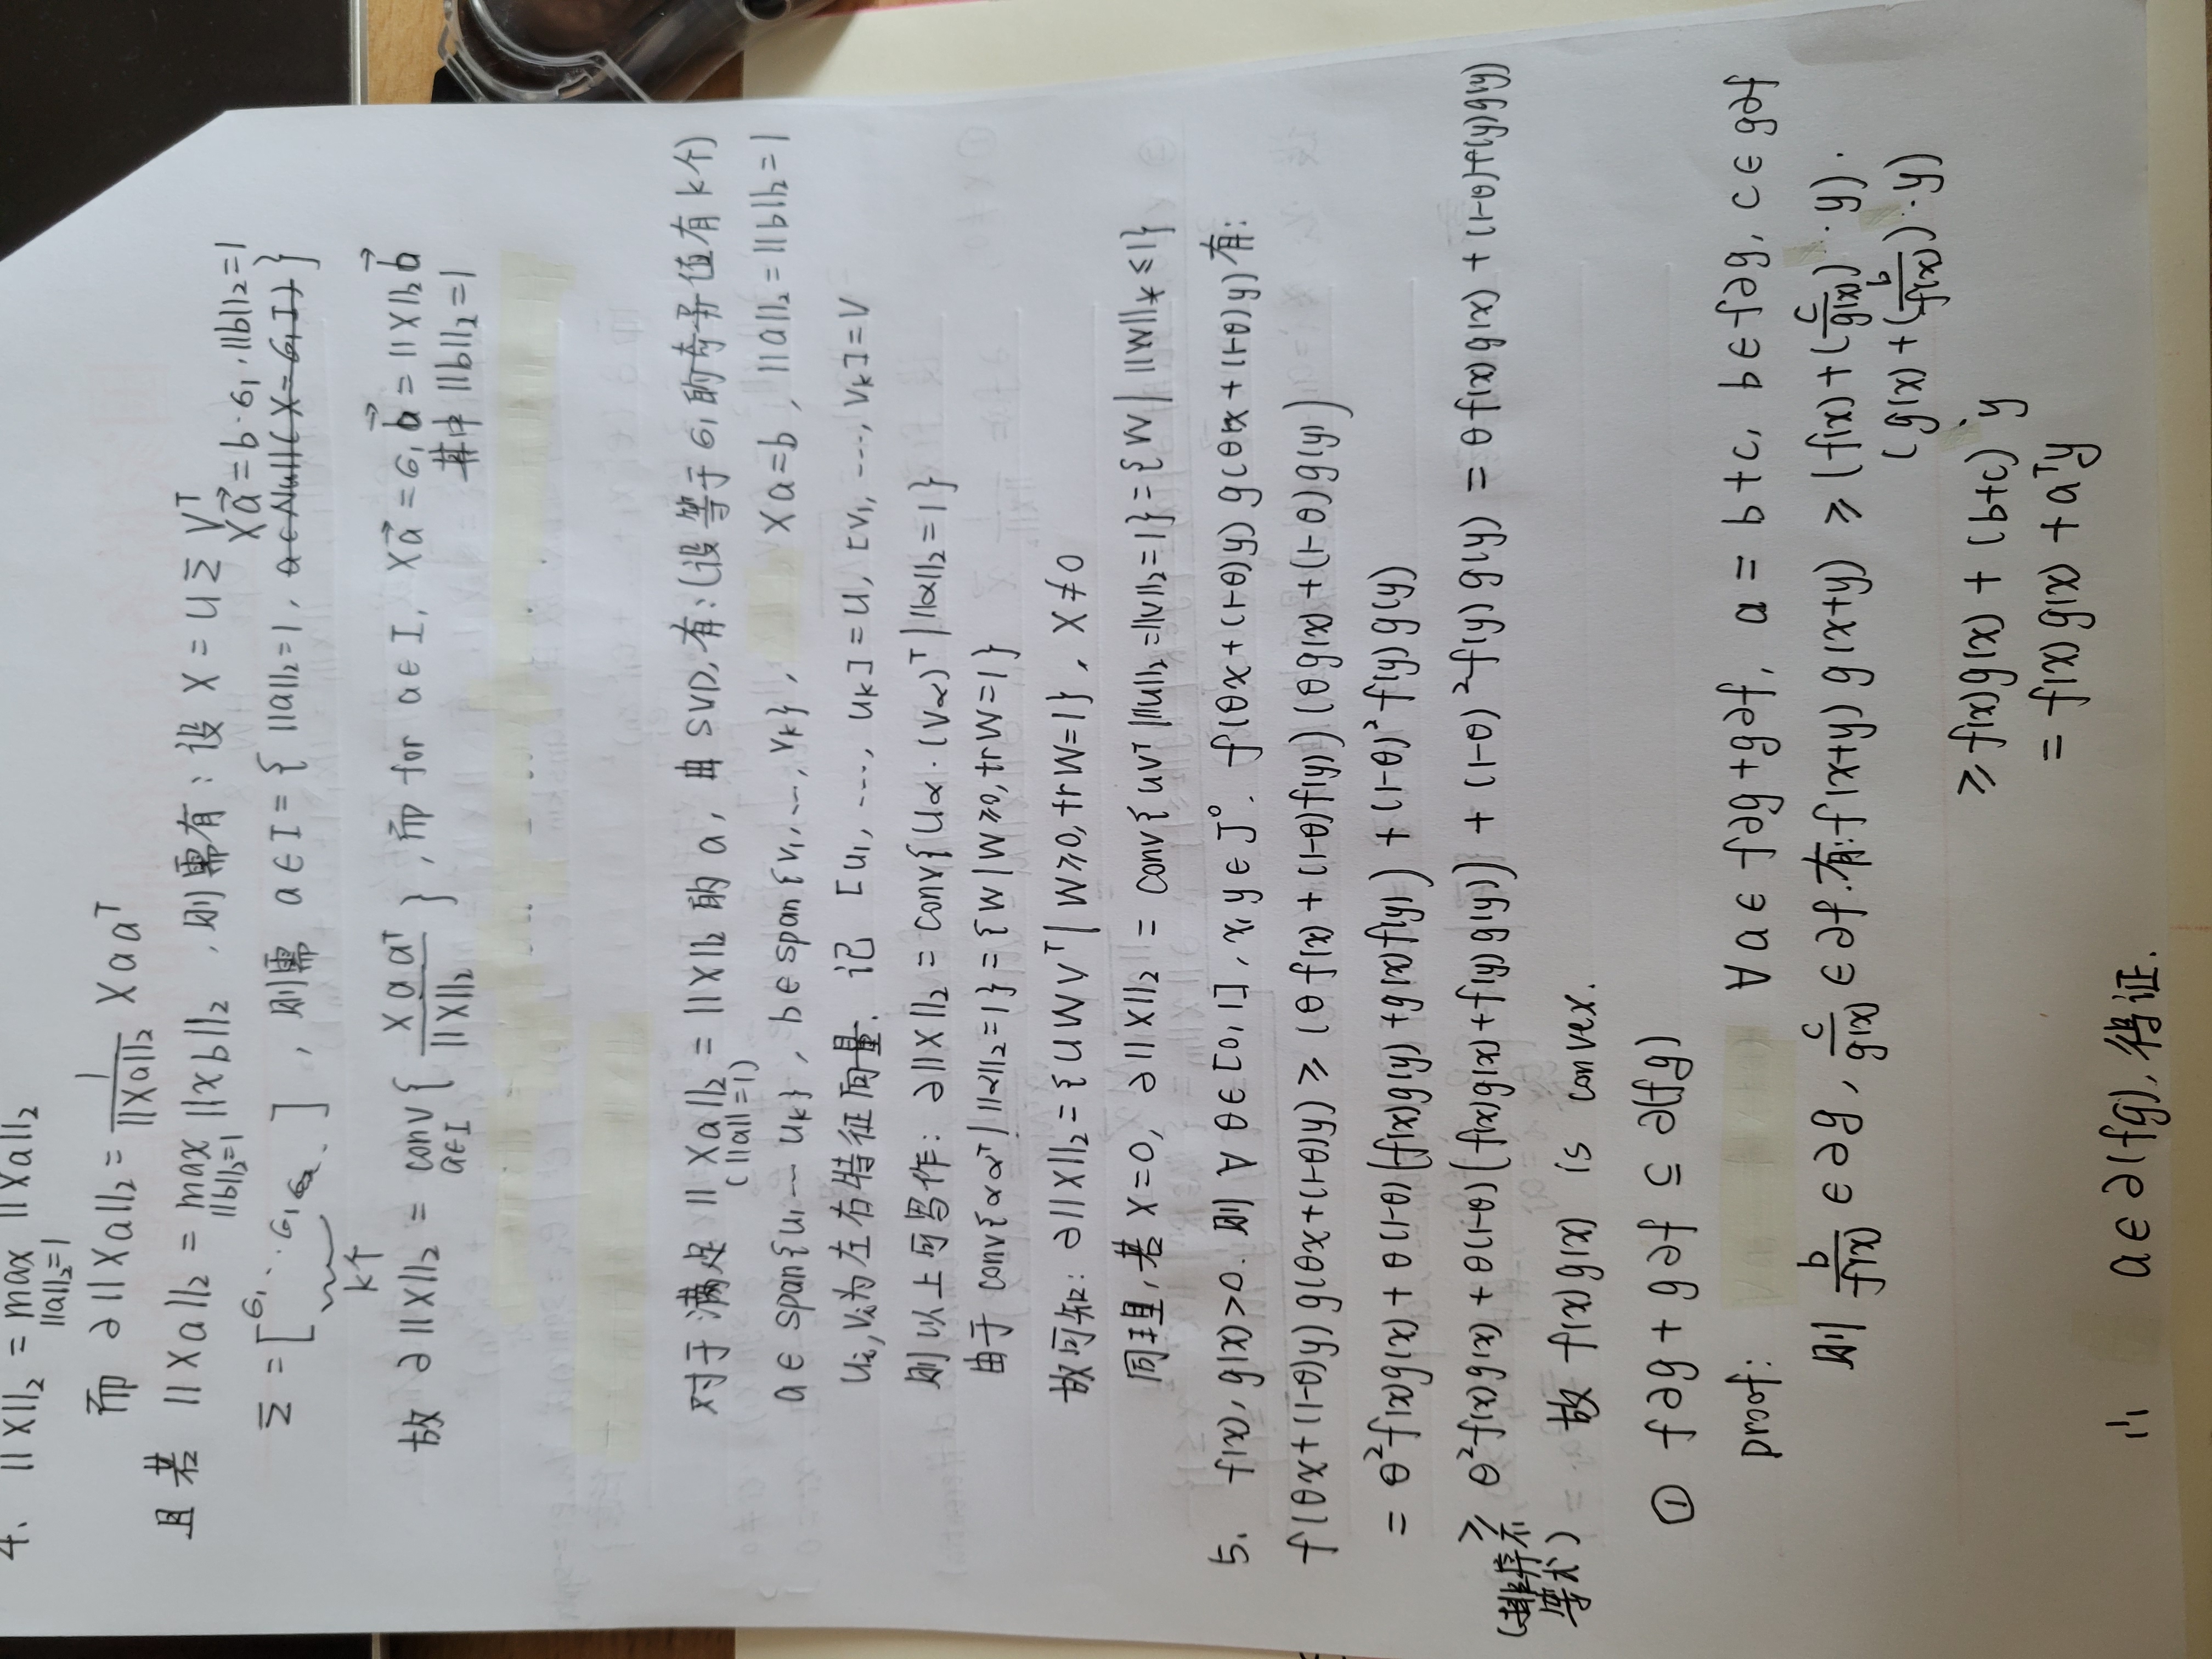 4. ||X||₂ = max ||Xa||₂
||a||₂=1
而 ∂||Xa||₂ = 1/||Xa||₂ Xaaᵀ
且若 ||Xa||₂ = max ||xb||₂ , 则需有: 设 X = UΣVᵀ
||b||₂=1
Xa⃗ = b·σ₁, ||b||₂=1
Σ = [σ₁ ⋱ σ₁ ], 则需 a∈I = { ||a||₂=1, a∈Null(X-σ₁I) }
k个
故 ∂||X||₂ = conv{ Xaaᵀ/||X||₂ }, 而 for a∈I, Xa⃗ = σ₁b⃗ = ||X||₂b⃗
a∈I
其中 ||b||₂=1
对于满足 ||Xa||₂ = ||X||₂ 的 a, 由 SVD, 有: (设等于σ₁的奇异值有k个)
(||a||=1)
a∈span{u₁ … uₖ}, b∈span{v₁, …, vₖ}, Xa=b, ||a||₂=||b||₂=1
uᵢ,vᵢ为左右特征向量. 记 [u₁, …, uₖ]=U, [v₁, …, vₖ]=V
则以上可写作: ∂||X||₂ = conv{Uα·(Vα)ᵀ | ||α||₂=1}
由于 conv{ααᵀ | ||α||₂=1} = {W | W≥0, trW=1}
故可知: ∂||X||₂ = {UWVᵀ | W≥0, trW=1}, X≠0
同理, 若 X=0, ∂||X||₂ = conv{uvᵀ | ||u||₂=||v||₂=1} = {W | ||W||* ≤1}
5. f(x), g(x)>0. 则 ∀ θ∈[0,1], x, y∈J°. f(θx+(1-θ)y) g(θx+(1-θ)y) 有:
f(θx+(1-θ)y) g(θx+(1-θ)y) ≥ (θf(x)+(1-θ)f(y)) (θg(x)+(1-θ)g(y))
= θ²f(x)g(x) + θ(1-θ)(f(x)g(y)+g(x)f(y)) + (1-θ)²f(y)g(y)
≥ θ²f(x)g(x) + θ(1-θ)(f(x)g(x)+f(y)g(y)) + (1-θ)²f(y)g(y) = θf(x)g(x) + (1-θ)f(y)g(y)
(排序不
等式)
故 f(x)g(x) is convex.
① f∂g + g∂f ⊆ ∂(fg)
proof: ∀a∈f∂g+g∂f, a = b+c, b∈f∂g, c∈g∂f
则 b/f(x) ∈∂g, c/g(x) ∈∂f. 有: f(x+y) g(x+y) ≥ (f(x)+(c/g(x))·y)·
(g(x)+(b/f(x))·y)
≥ f(x)g(x) + (b+c) y
= f(x)g(x) + aᵀy
∴ a∈∂(fg), 得证.